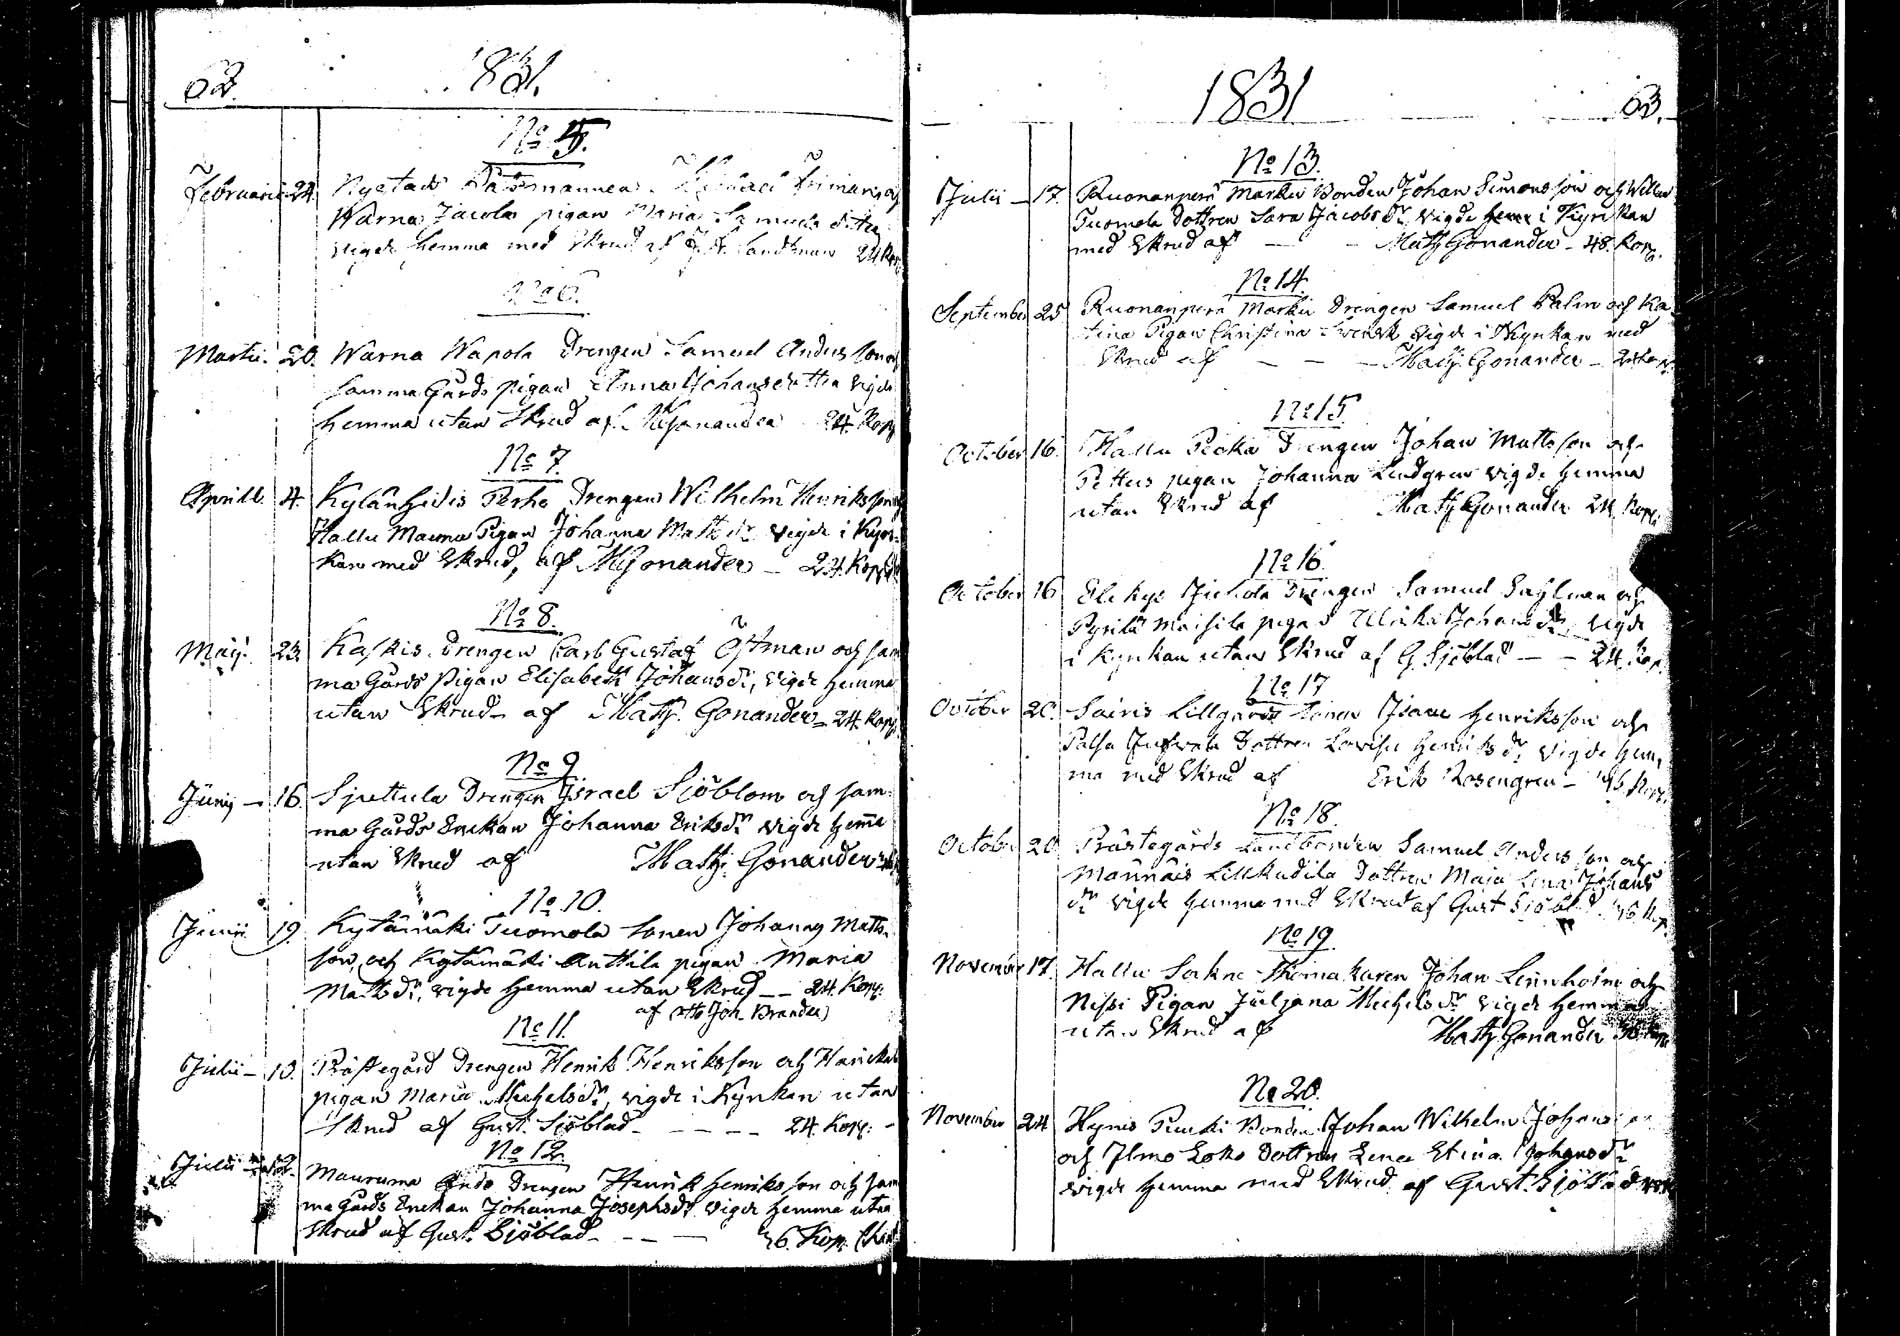 62. 1831.
No 5.
Februarii 24. Nystads Båtsmannen Michael Friman och
Warna Jacola pigan Maria Samuels dotter
vigde hemma med Skrud af J. F. Sandman 24 Kop
No 6.
Martii 20. Warna Napola Drengen Samuel Andersson och
samma Gårds pigan Anna Johansdotter vigde
hemma utan Skrud af MGonander 24. Kop
No 7.
Aprill. 4. Kylänhidis Perho Drengen Wilhelm Henriksson och
Hallu Mauno Pigan Johanna Matts dr vigde i Kyr-
kan med Skrud, af MGonander — 24. Kop
No 8.
Maij. 23. Kaskis Drengen Carl Gustaf Östman och sam
ma Gårds Pigan Elisabeth Johansdr, vigde hemma
utan Skrud af Math. Gonander - 24. Kop
No 9
Junij — 16. Sjuttula Drengen Israel Sjöblom och sam-
ma Gårds Enckan Johanna Eriksdr vigde hemma
utan Skrud af Math. Gonander
No. 10.
Junii 19. Kytämäki Tuomola sonen Johannes Matts-
son, och Kytämäki Anttila pigan Maria
Matts dr, vigde hemma utan Skrud — 24. Kop:
af Otto Joh. Brander
No 11.
Julii — 10. Prästegård Drengen Henrik Henriksson och
pigan Maria Michelsdr, vigde i Kyrkan utan
Skrud af Gust. Sjöblad — — — — 24. Kop: -
No 12.
Julii Mauruma Drengen Henrik Henriksson och sam
ma Gårds Enckan Johanna Josephsdr vigde hemma utan
Skrud af Gust. Sjöblad — — — 36. Kop.
1831 63.
No 13.
Julii — 17. Ruonanperä Marku Bonden Johan Simonsson och
Tuomola Dottren Sara Jacobs dr vigde i Kyrkan
med Skrud af — — Math Gonander - 48. Kop.
No 14.
September 25 Ruonanperä Marku Drengen Samuel Palm och Ka-
tina Pigan Christina vigde i Kyrkan med
Skrud af — — — Math. Gonander —
No 15
October 16. Hallu Pecka Drengen Johan Mattsson och
Pettus pigan Johanna Lindgren vigde hemma
utan Skrud af Math Gonander 24. Kop:
No 16.
October 16 Elikys Drengen Samuel och
Pyrilä pigan Ulrika Johans dr, vigde
i Kyrkan utan Skrud af G. Sjöblad — — 24. Kop.
No 17
October 20. Sairis Lillgårds Sonen Isaac Henriksson och
Palsa Dottren Lovisa Henriks dr vigde hem-
ma med Skrud af Erik Rosengren — 36 Kop:
No 18.
October 20 Prästegårds Landbonden Samuel Andersson och
Männäis Lillkudila Dottren Maja Lena Johans
dr vigde hemma med Skrud af Gust Sjöblad 36 Kop.
No 19.
November 17. Hallu Sakne Thomakaren Johan Lennholm och
Nissi Pigan Juljana Michels dr vigde hemma
utan Skrud af Math Gonander
No 20.
November 24 Hynis Bonden Johan Wilhelm Johansson
och Ilmo Loko Dottren Lena Stina Johansdr
vigde hemma med Skrud af Gust. Sjöblad